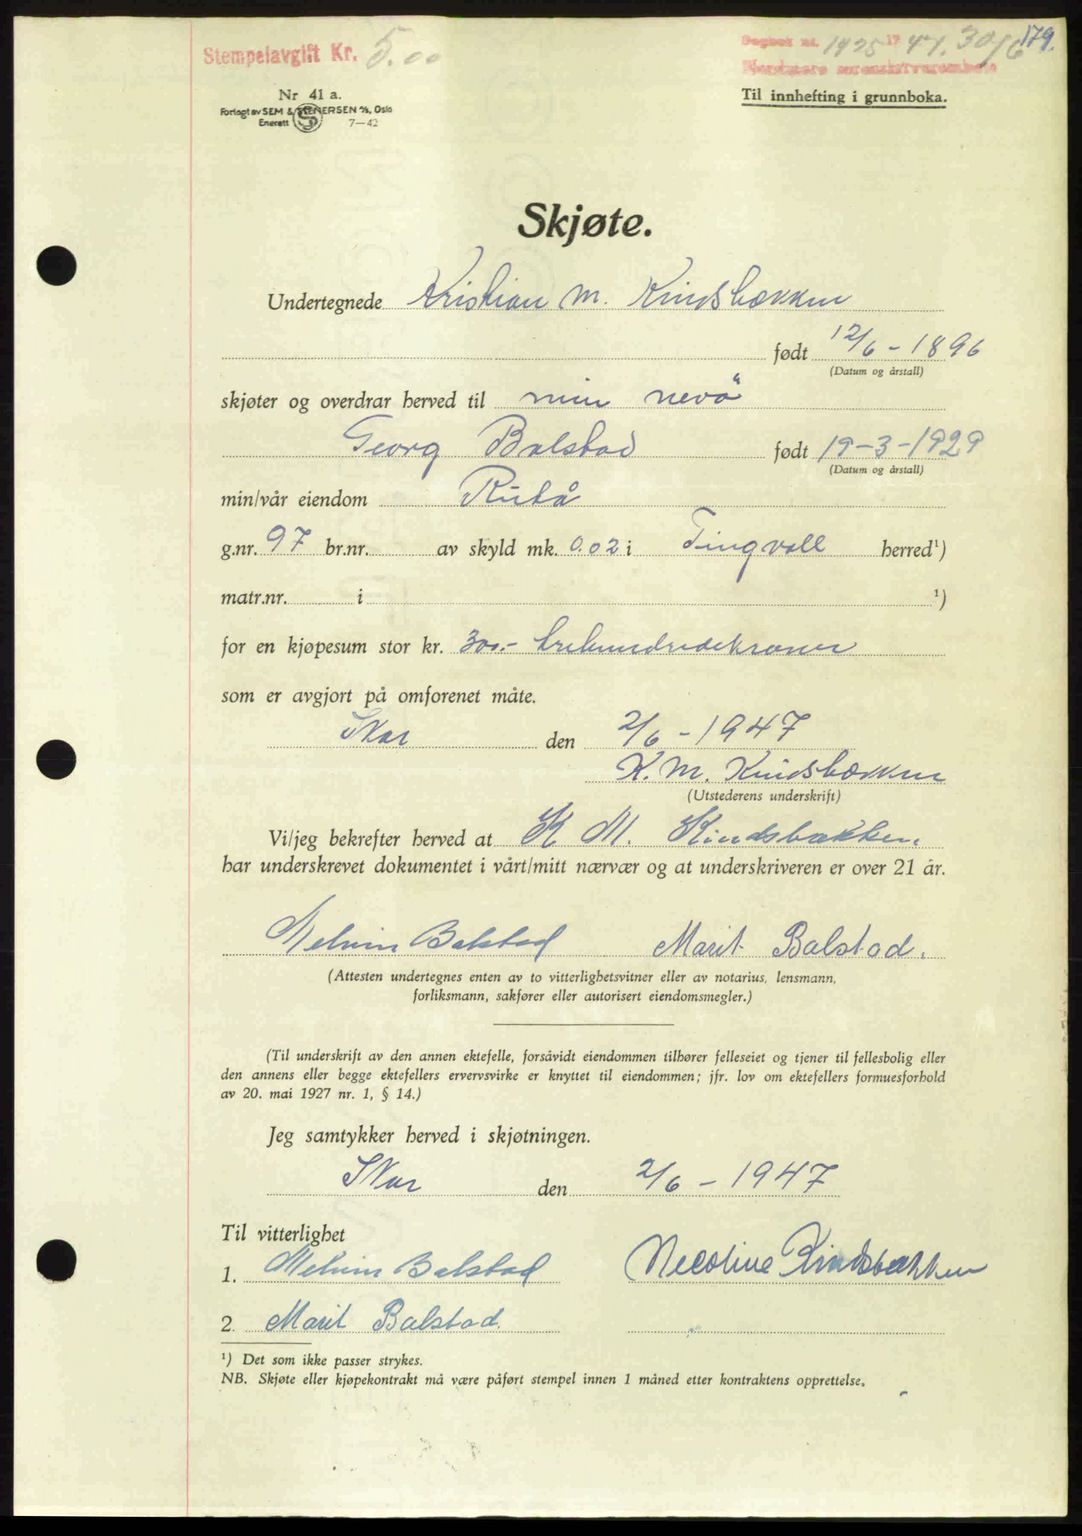 Stempelavgift Kr. 5.00
Dagbok nr. 1925 1947. 30/6 179.
Nordmøre sorenskriverembete
Nr 41 a.
Forlagt av SEM & STENERSEN A/S, Oslo
Enerett 7—42
Til innhefting i grunnboka.
Skjøte.
Undertegnede Kristian M. Kindsbækken
født 12/6 - 1896
(Datum og årstall)
skjøter og overdrar herved til min nevø
Georg Balstad født 19-3-1929
(Datum og årstall)
min/vår eiendom
g.nr. 97 br.nr. av skyld mk. 0.02 i Tingvoll herred¹)
matr.nr. i ¹)
for en kjøpesum stor kr. 300.- trehundredekroner
som er avgjort på omforenet måte.
Skar den 2/6 - 1947
K. M. Kindsbækken
(Utstederens underskrift)
Vi/jeg bekrefter herved at K M. Kindsbækken.
har underskrevet dokumentet i vårt/mitt nærvær og at underskriveren er over 21 år.
Melvin Balstad Marit Balstad.
(Attesten undertegnes enten av to vitterlighetsvitner eller av notarius, lensmann,
forliksmann, sakfører eller autorisert eiendomsmegler.)
(Til underskrift av den annen ektefelle, forsåvidt eiendommen tilhører felleseiet og tjener til fellesbolig eller
den annens eller begge ektefellers ervervsvirke er knyttet til eiendommen; jfr. lov om ektefellers formuesforhold
av 20. mai 1927 nr. 1, § 14.)
Jeg samtykker herved i skjøtningen.
Skar den 2/6 - 1947
Til vitterlighet
1. Melvin Balstad Necoline Kindsbækken
2. Marit Balstad.
¹) Det som ikke passer strykes.
NB. Skjøte eller kjøpekontrakt må være påført stempel innen 1 måned etter kontraktens opprettelse.